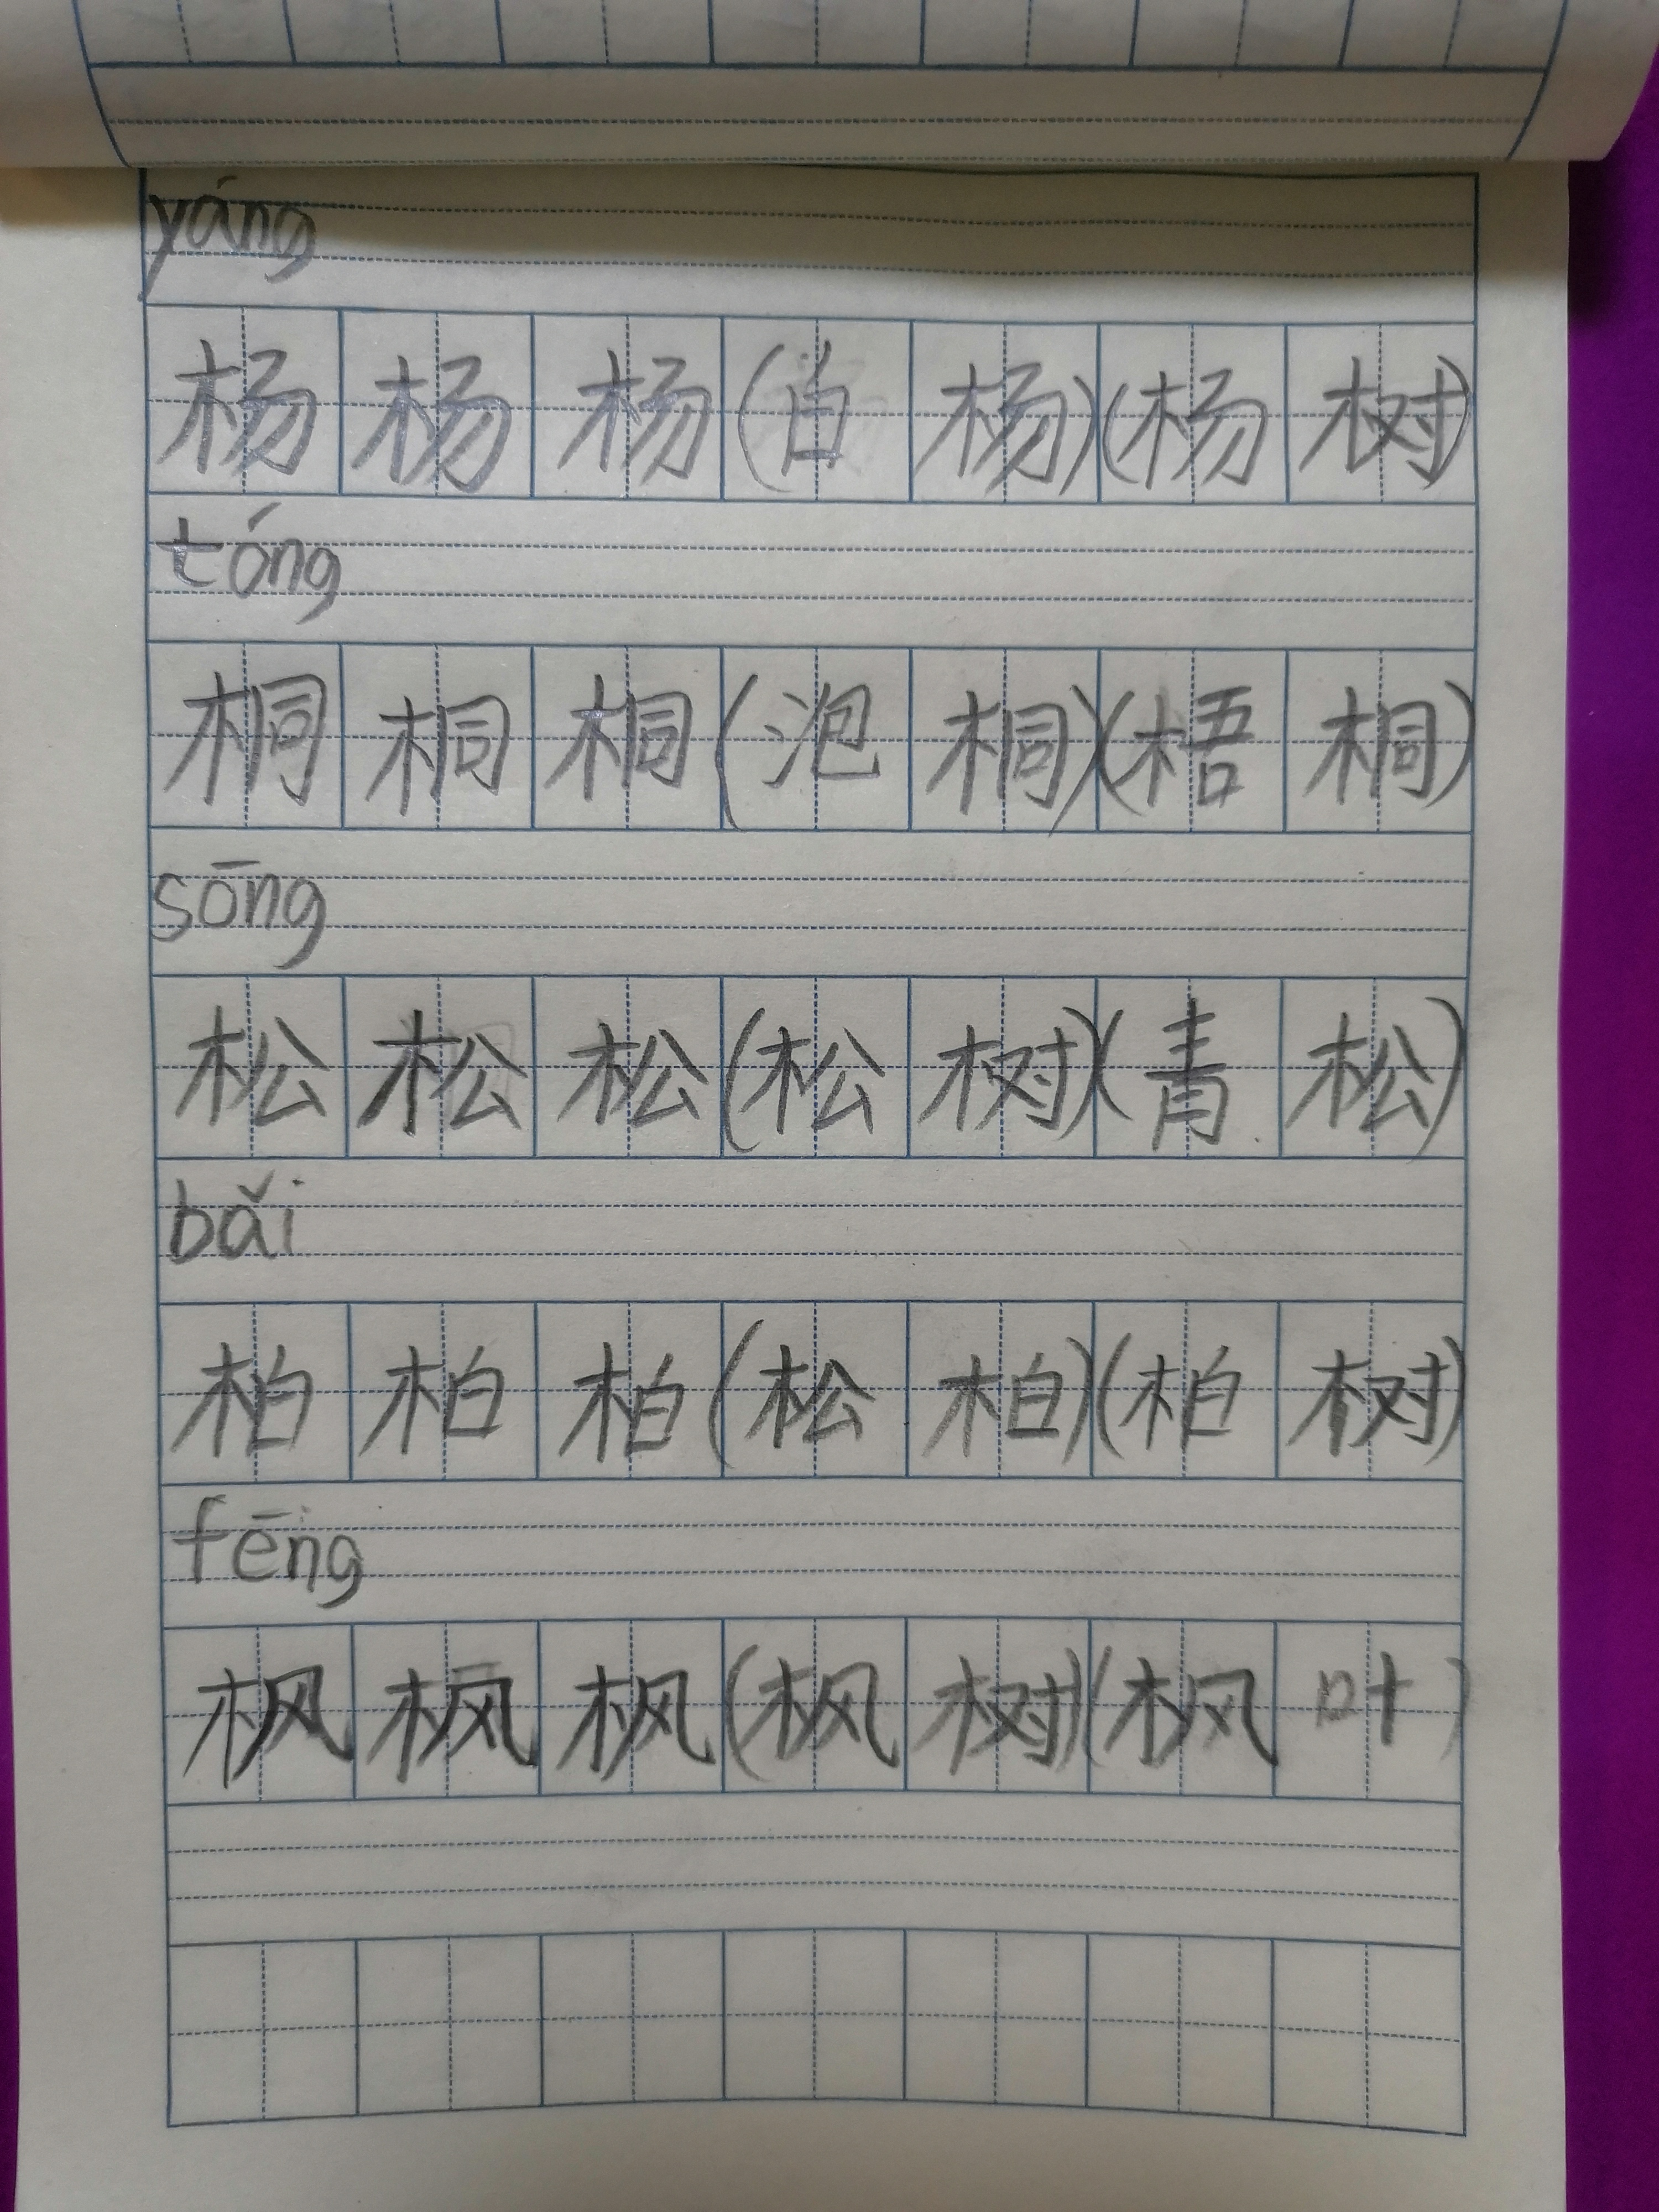 yáng
杨杨杨(白杨)(杨树)
tóng
桐桐桐(泡桐)(梧桐)
sōng
松松松(松树)(青松)
bǎi
柏柏柏(松柏)(柏树)
fēng
枫枫枫(枫树)(枫叶)